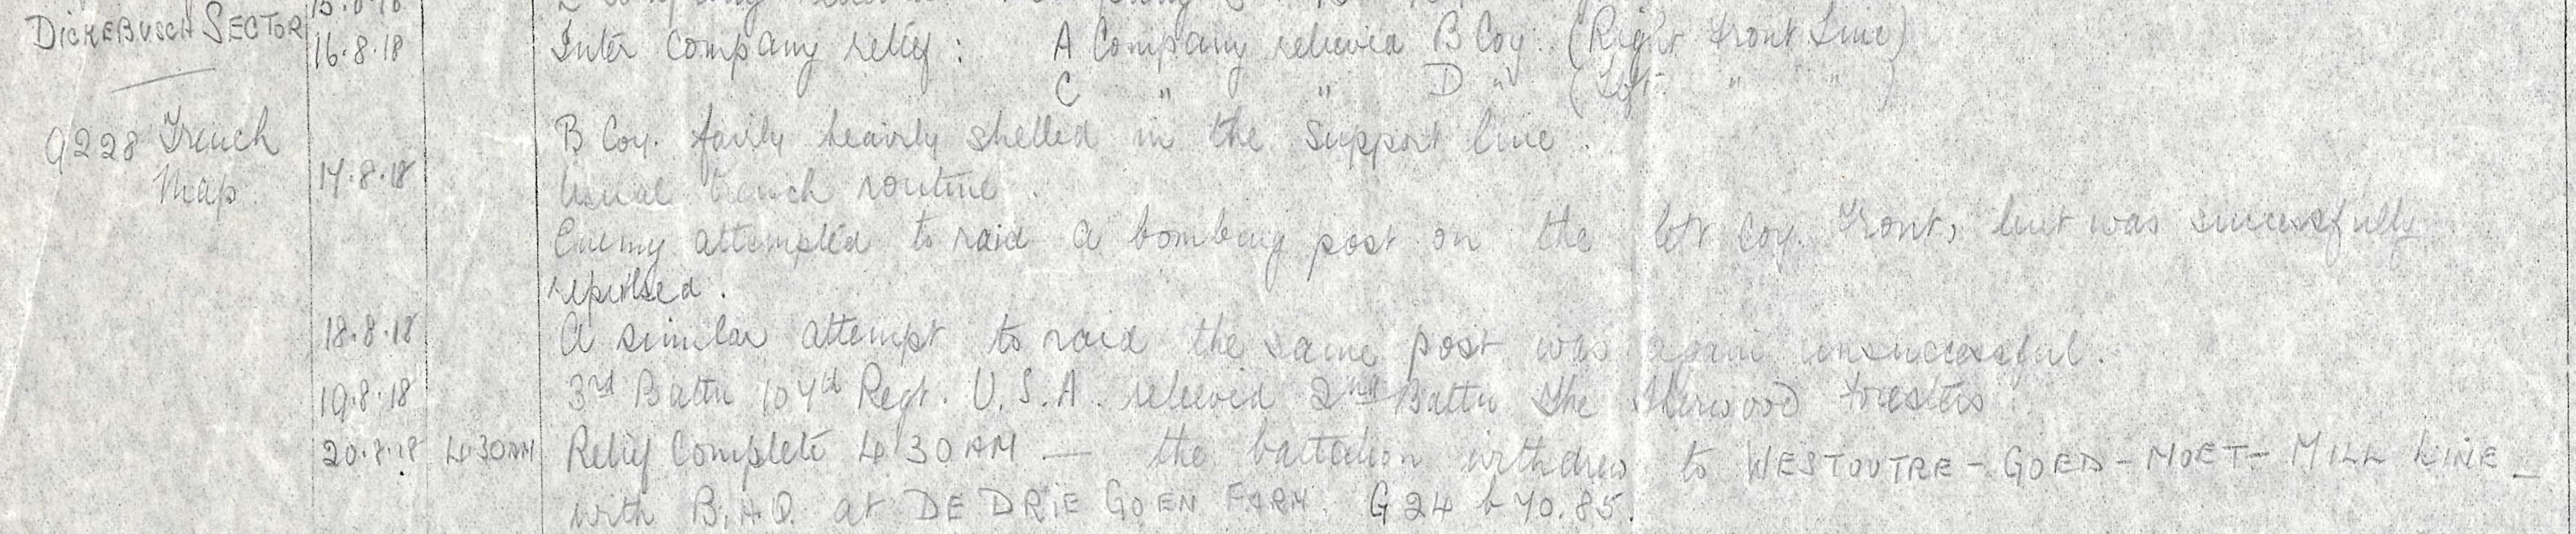 15.8.18
DICKEBUSCH SECTOR 16.8.18 Inter Company relief : A Company relieved B Coy (Right Front Line)
C " " D " (Left " " )
9228 Trench B Coy. fairly heavily shelled in the support line.
Map 17.8.18 Usual trench routine.
Enemy attempted to raid a bombing post on the left Coy. Front, but was successfully
repulsed.
18.8.18 A similar attempt to raid the same post was again unsuccessful.
19.8.18 3rd Battn 107d Regt. U.S.A. relieved 2nd Battn The Sherwood Foresters.
20.8.18 4.30AM Relief Complete 4.30AM — the battalion withdrew to WESTOUTRE - GOED - MOET - MILL LINE -
with B.H.Q. at DE DRIE GOEN FARM. G 24 b 70.85.